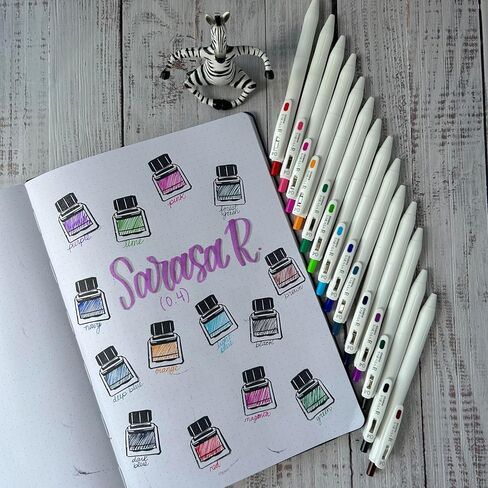 pink
forest
green
purple
lime
Sarasa R.
(0.4)
brown
navy
light
blue
black
orange
deep blue
magenta
green
dark
blue
red